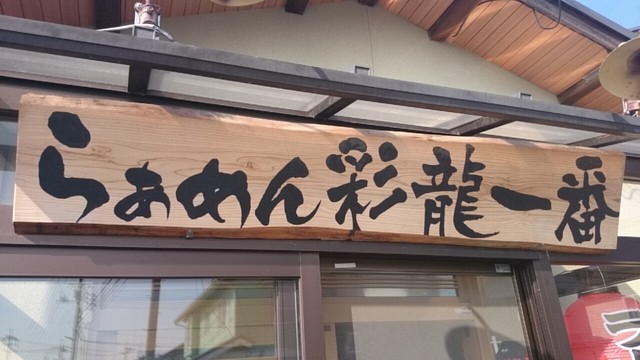 らぁめん彩龍一番